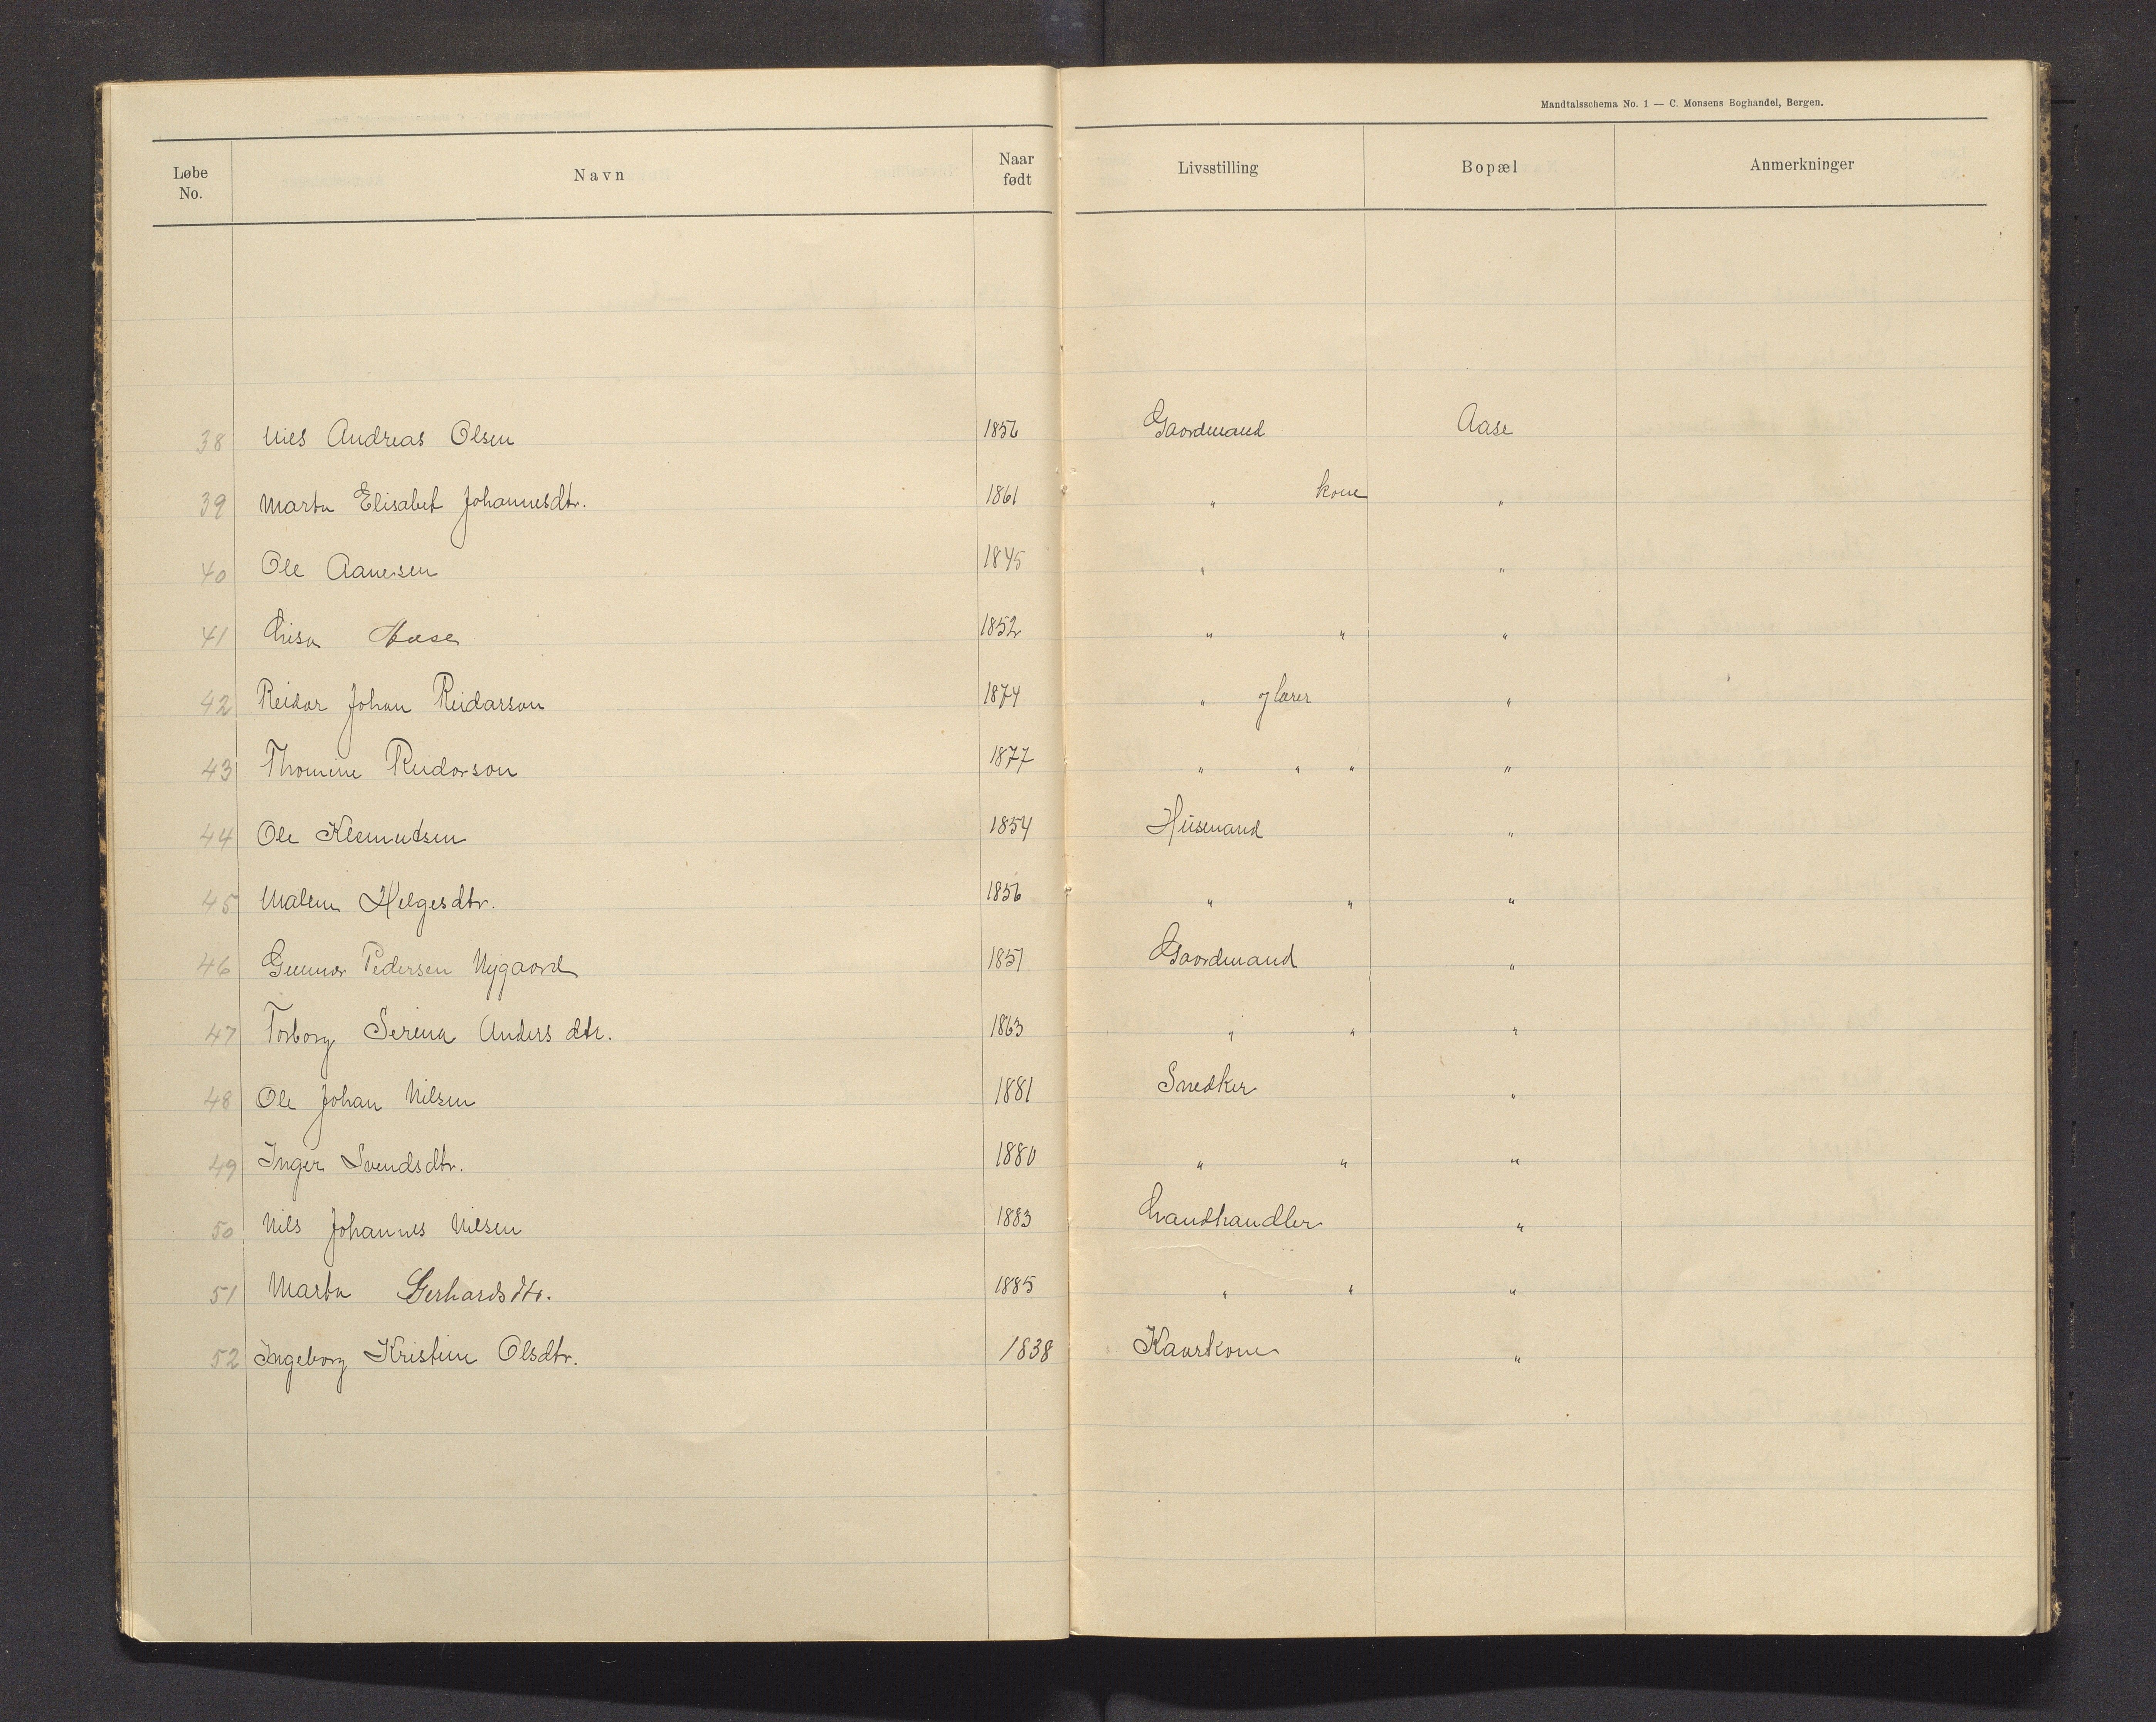 Mandtalsschema No. 1 — C. Monsens Boghandel, Bergen.
Løbe No. Navn Naar født Livsstilling Bopæl Anmerkninger
38 Nils Andreas Olsen 1856 Gaardmand Aase
39 Marta Elisabet Johannesdtr. 1861 " kone "
40 Ole Aanesen 1845 " "
41 Lisa Aase 1852 " " "
42 Reidar Johan Reidarson 1874 " og lærer "
43 Thomine Reidarson 1877 " " " "
44 Ole Klemetsen 1854 Husmand "
45 Malene Helgesdtr. 1856 " " "
46 Gunnar Pedersen Nygaard 1851 Gaardmand "
47 Torborg Serina Anders dtr. 1863 " " "
48 Ole Johan Nilsen 1881 Snedker "
49 Inger Svendsdtr. 1880 " " "
50 Nils Johannes Nilsen 1883 Landhandler "
51 Marta Gerhardsdtr. 1885 " " "
52 Ingeborg Kristine Olsdtr. 1838 Kaarkone "